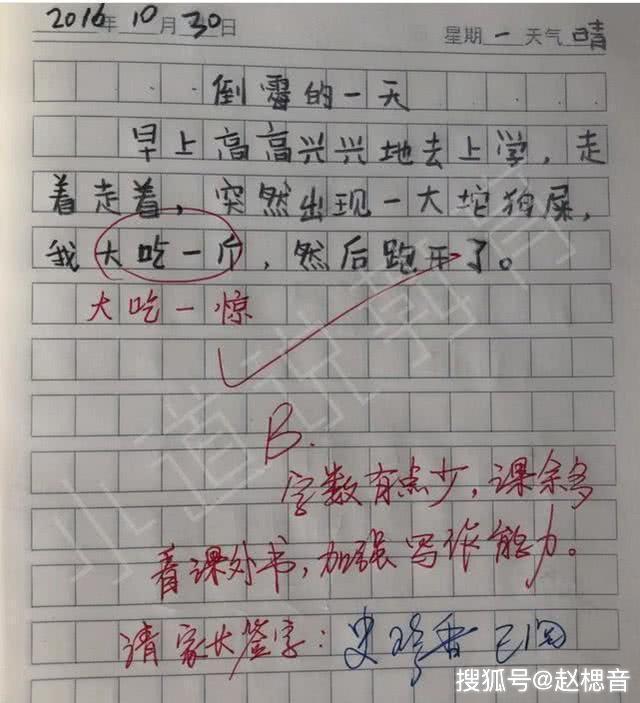 2016年10月30日 星期一 天气晴
倒霉的一天
早上高高兴兴地去上学，走
着走着，突然出现一大坨狗屎，
我大吃一斤，然后跑开了。
大吃一惊
B.
字数有点少，课余多
看课外书，加强写作能力。
请家长签字：史珍香 已阅
搜狐号@赵楒音